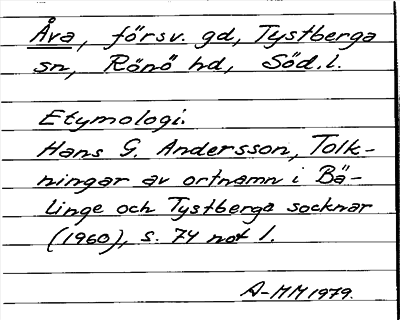 Åva, försv. gd, Tystberga
sn, Rönö hd, Söd.l.
Etymologi:
Hans G. Andersson, Tolk-
ningar av ortnamn i Bä-
linge och Tystberga socknar
(1960), s. 74 not 1.
A-MM 1979.